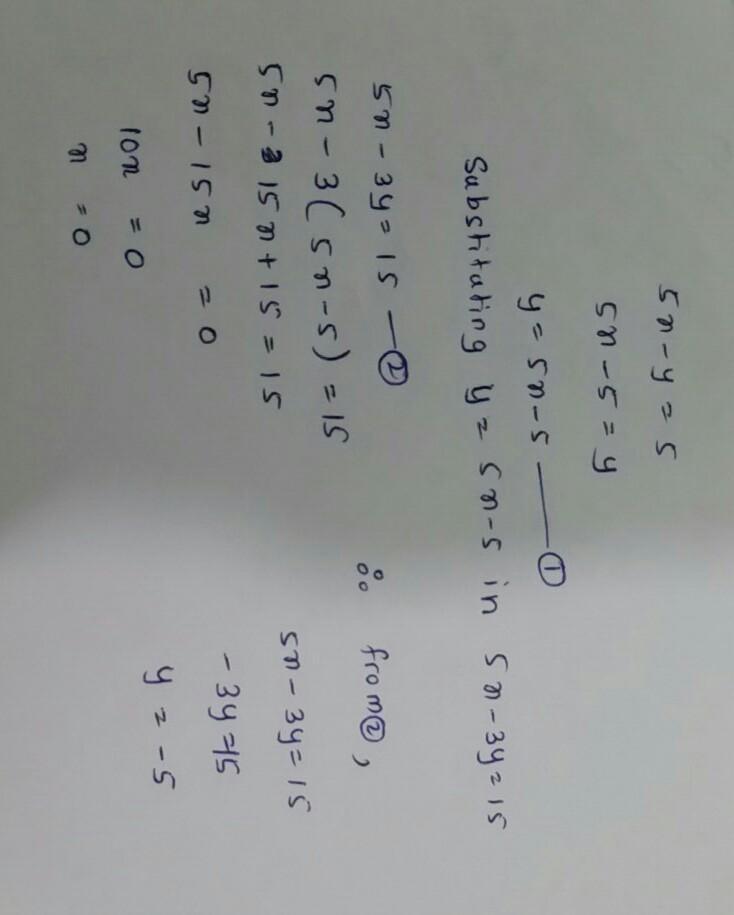 5x - y = 5
5x - 5 = y
y = 5x - 5 —— ①
Substituting y = 5x - 5 in 5x - 3y = 15
5x - 3y = 15 — ②
5x - 3(5x - 5) = 15
5x - 15x + 15 = 15
5x - 15x = 0
10x = 0
x = 0
∴ from ②,
5x - 3y = 15
- 3y = 15
y = - 5